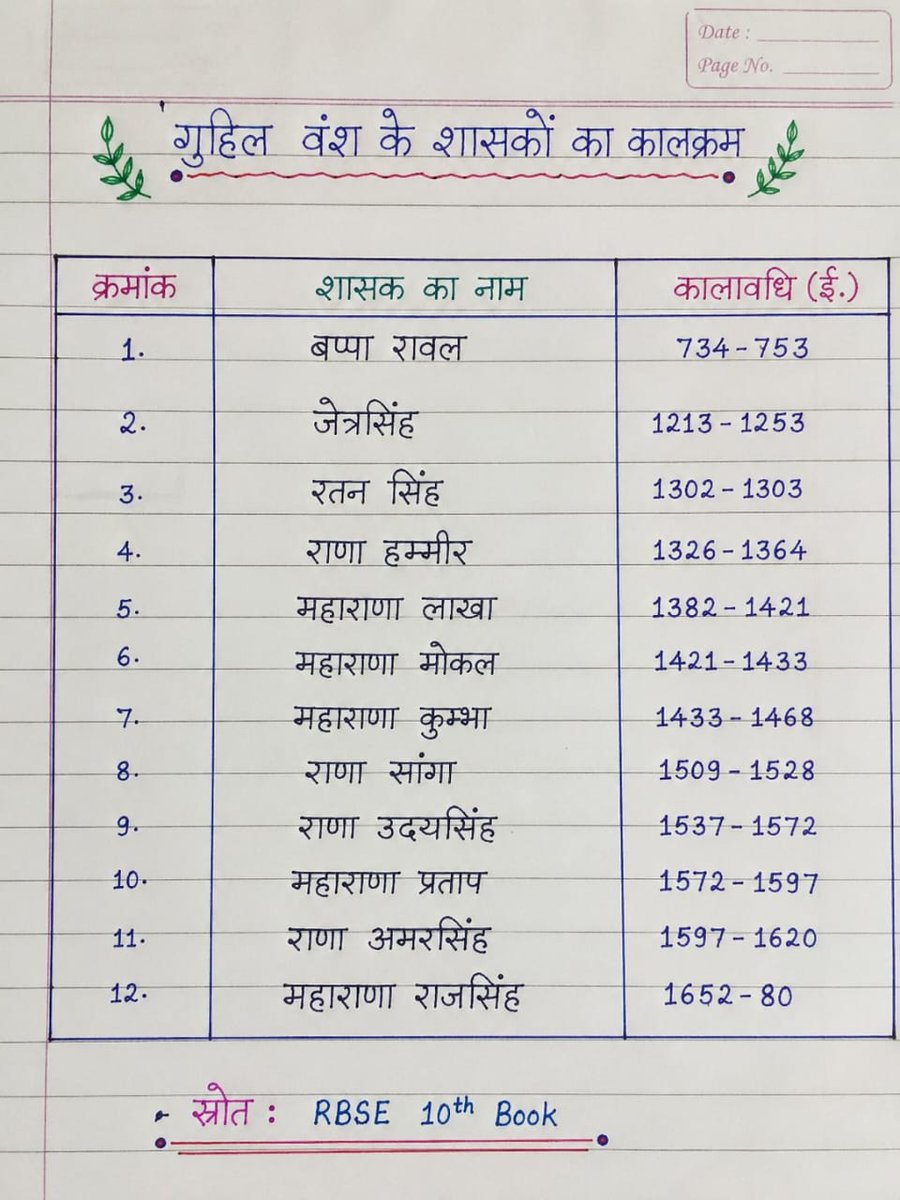 Date :
Page No.
गुहिल वंश के शासकों का कालक्रम
क्रमांक शासक का नाम कालावधि (ई.)
1. बप्पा रावल 734 - 753
2. जेत्रसिंह 1213 - 1253
3. रतन सिंह 1302 - 1303
4. राणा हम्मीर 1326 - 1364
5. महाराणा लाखा 1382 - 1421
6. महाराणा मोकल 1421 - 1433
7. महाराणा कुम्भा 1433 - 1468
8. राणा सांगा 1509 - 1528
9. राणा उदयसिंह 1537 - 1572
10. महाराणा प्रताप 1572 - 1597
11. राणा अमरसिंह 1597 - 1620
12. महाराणा राजसिंह 1652 - 80
स्रोत : RBSE 10th Book